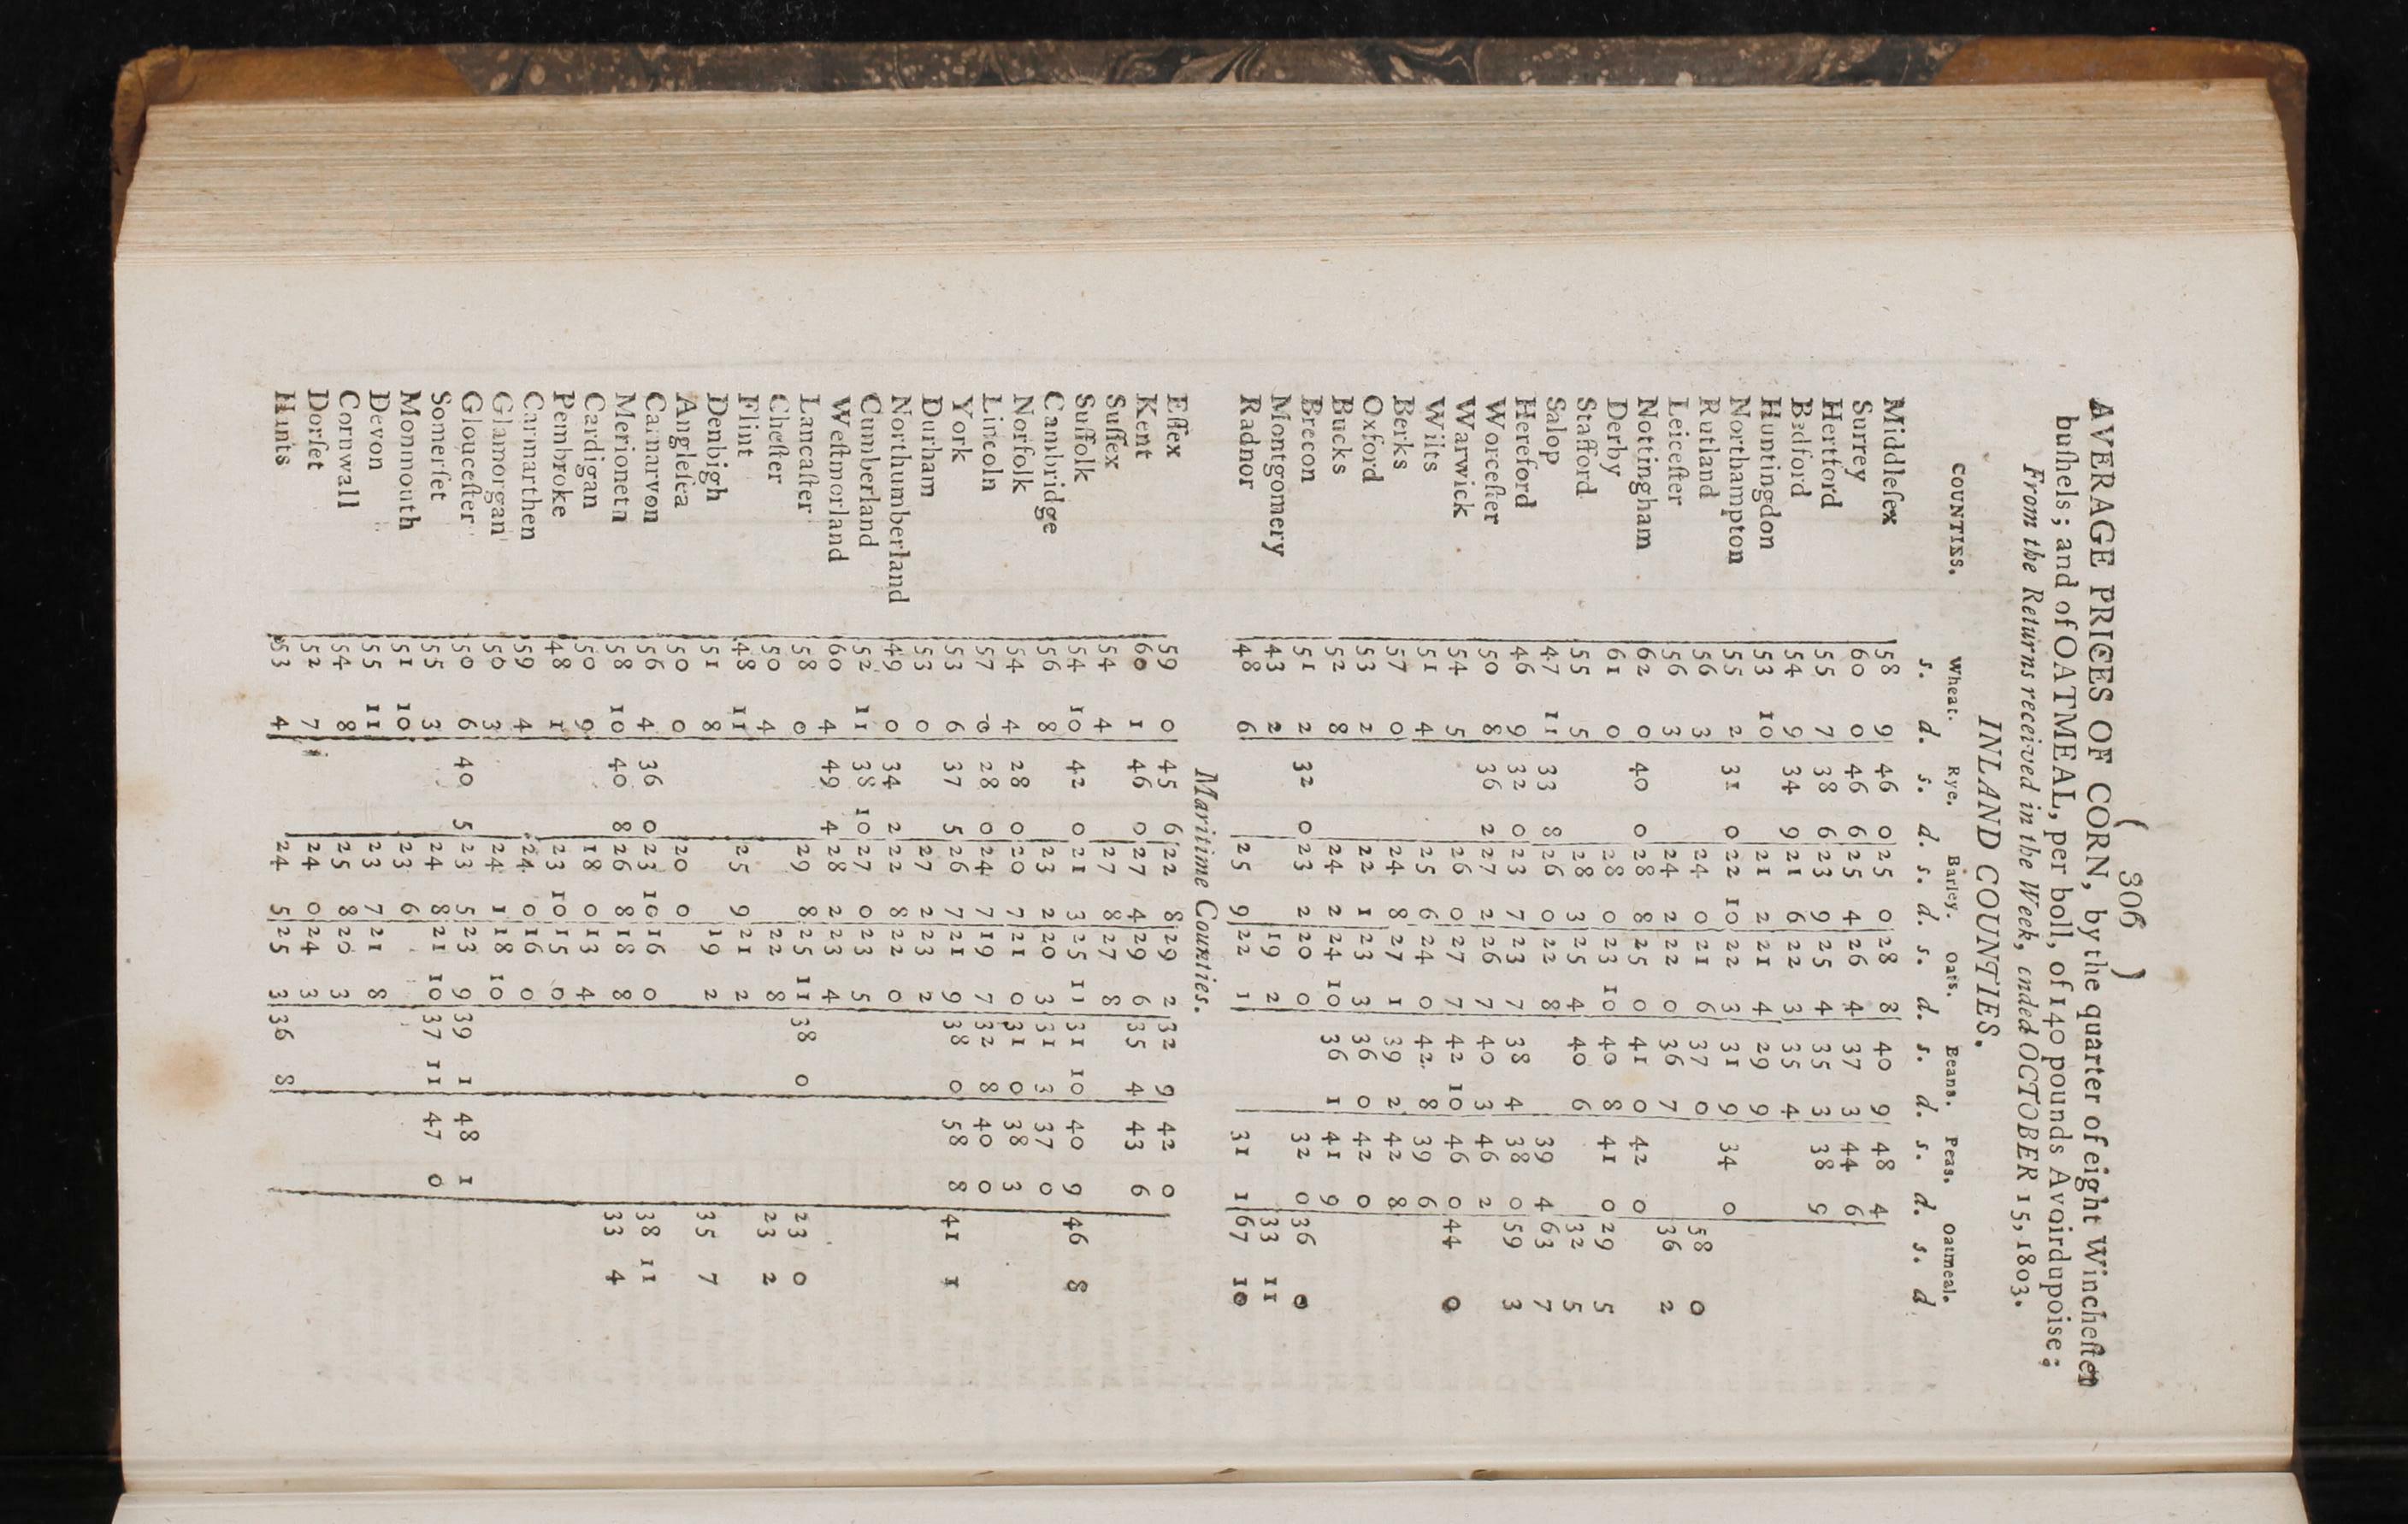 ( 306 )
AVERAGE PRICES OF CORN, by the quarter of eight Wincheſter
buſhels; and of OATMEAL, per boll, of 140 pounds Avoirdupoise;
From the Returns received in the Week, ended OCTOBER 15, 1803.
INLAND COUNTIES.
COUNTIES. Wheat. Rye. Barley. Oats. Beans. Peas. Oatmeal.
s. d. s. d. s. d. s. d. s. d. s. d. s. d
Middleſex 58 9 46 0 25 0 28 8 40 9 48 4
Surrey 60 0 46 6 25 4 26 4 37 3 44 6
Hertford 55 7 38 6 23 9 25 4 35 3 38 9
Bedford 54 9 34 9 21 6 22 3 35 4
Huntingdon 53 10 21 2 21 4 29 9
Northampton 55 2 31 0 22 10 22 3 31 9 34 0
Rutland 56 3 24 0 21 6 37 0 58 0
Leiceſter 56 3 24 2 22 0 36 7 36 2
Nottingham 62 0 40 0 28 8 25 0 41 0 42 0
Derby 61 0 28 0 23 10 40 8 41 0 29 5
Stafford 55 5 28 3 25 4 40 6 32 5
Salop 47 11 33 8 26 0 22 8 39 4 63 7
Hereford 46 9 32 0 23 7 23 7 38 4 38 0 59 3
Worceſter 50 8 36 2 27 2 26 7 40 3 46 2
Warwick 54 5 26 0 27 7 42 10 46 0 44 0
Wilts 51 4 25 6 24 0 42 8 39 6
Berks 57 0 24 8 27 1 39 2 42 8
Oxford 53 2 22 1 23 3 36 0 42 0
Bucks 52 8 24 2 24 10 36 1 41 9
Brecon 51 2 32 0 23 2 20 0 32 0 36 0
Montgomery 43 2 19 2 33 11
Radnor 48 6 25 9 22 1 31 1 67 10
Maritime Counties.
Eſſex 59 0 45 6 22 8 29 2 32 9 42 0
Kent 60 1 46 0 27 4 29 6 35 4 43 6
Suſſex 54 4 27 8 27 8
Suffolk 54 10 42 0 21 3 25 11 31 10 40 9 46 8
Cambridge 56 8 23 2 20 3 31 3 37 0
Norfolk 54 4 28 0 20 7 21 0 31 0 38 3
Lincoln 57 0 28 0 24 7 19 7 32 8 40 0
York 53 6 37 5 26 7 21 9 38 0 58 8 41 1
Durham 53 0 27 2 23 2
Northumberland 49 0 34 2 22 8 22 0
Cumberland 52 11 38 10 27 0 23 5
Weſtmorland 60 4 49 4 28 2 23 4
Lancaſter 58 0 29 8 25 11 38 0 23 0
Cheſter 50 4 22 8 23 2
Flint 48 11 25 9 21 2
Denbigh 51 8 19 2 35 7
Angleſea 50 0 20 0
Carnarvon 56 4 36 0 23 10 16 0 38 11
Merioneth 58 10 40 8 26 8 18 8 33 4
Cardigan 50 9 18 0 13 4
Pembroke 48 1 23 10 15 0
Carmarthen 59 4 24 0 16 0
Glamorgan 50 3 24 1 18 10
Glouceſter 50 6 40 5 23 5 23 9 39 1 48 1
Somerſet 55 3 24 8 21 10 37 11 47 0
Monmouth 51 10 23 6
Devon 55 11 23 7 21 8
Cornwall 54 8 25 8 20 3
Dorſet 52 7 24 0 24 3
Hants 53 4 24 5 25 3 36 8